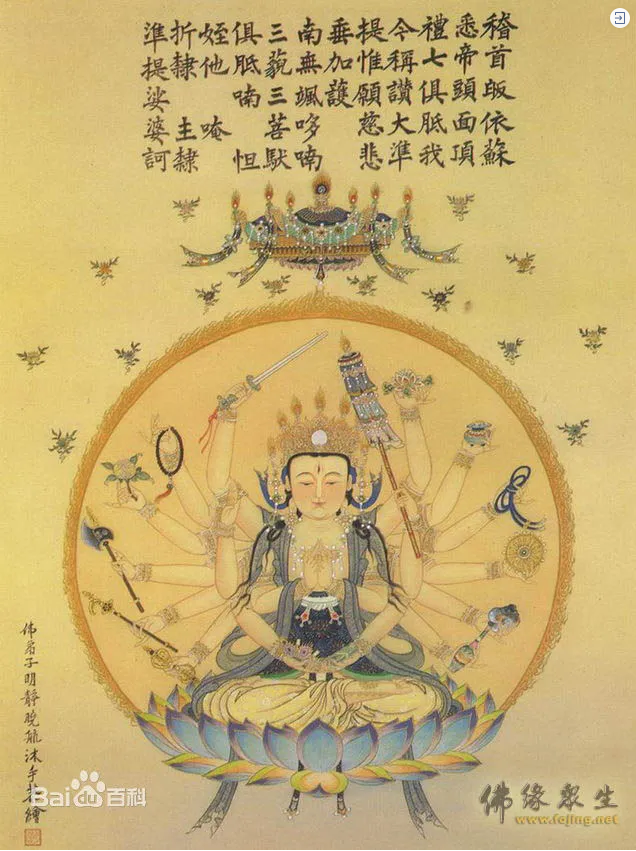 稽首皈依蘇
悉帝頭面頂
禮七俱胝我
今稱讚大準
提惟願慈悲
垂加護
南無颯哆喃
三藐三菩馱
俱胝喃 怛
姪他 唵
折隸 主隸
準提娑婆訶
佛弟子明靜晚沐手恭繪
Bai du 百科
佛緣眾生
www.fojing.net